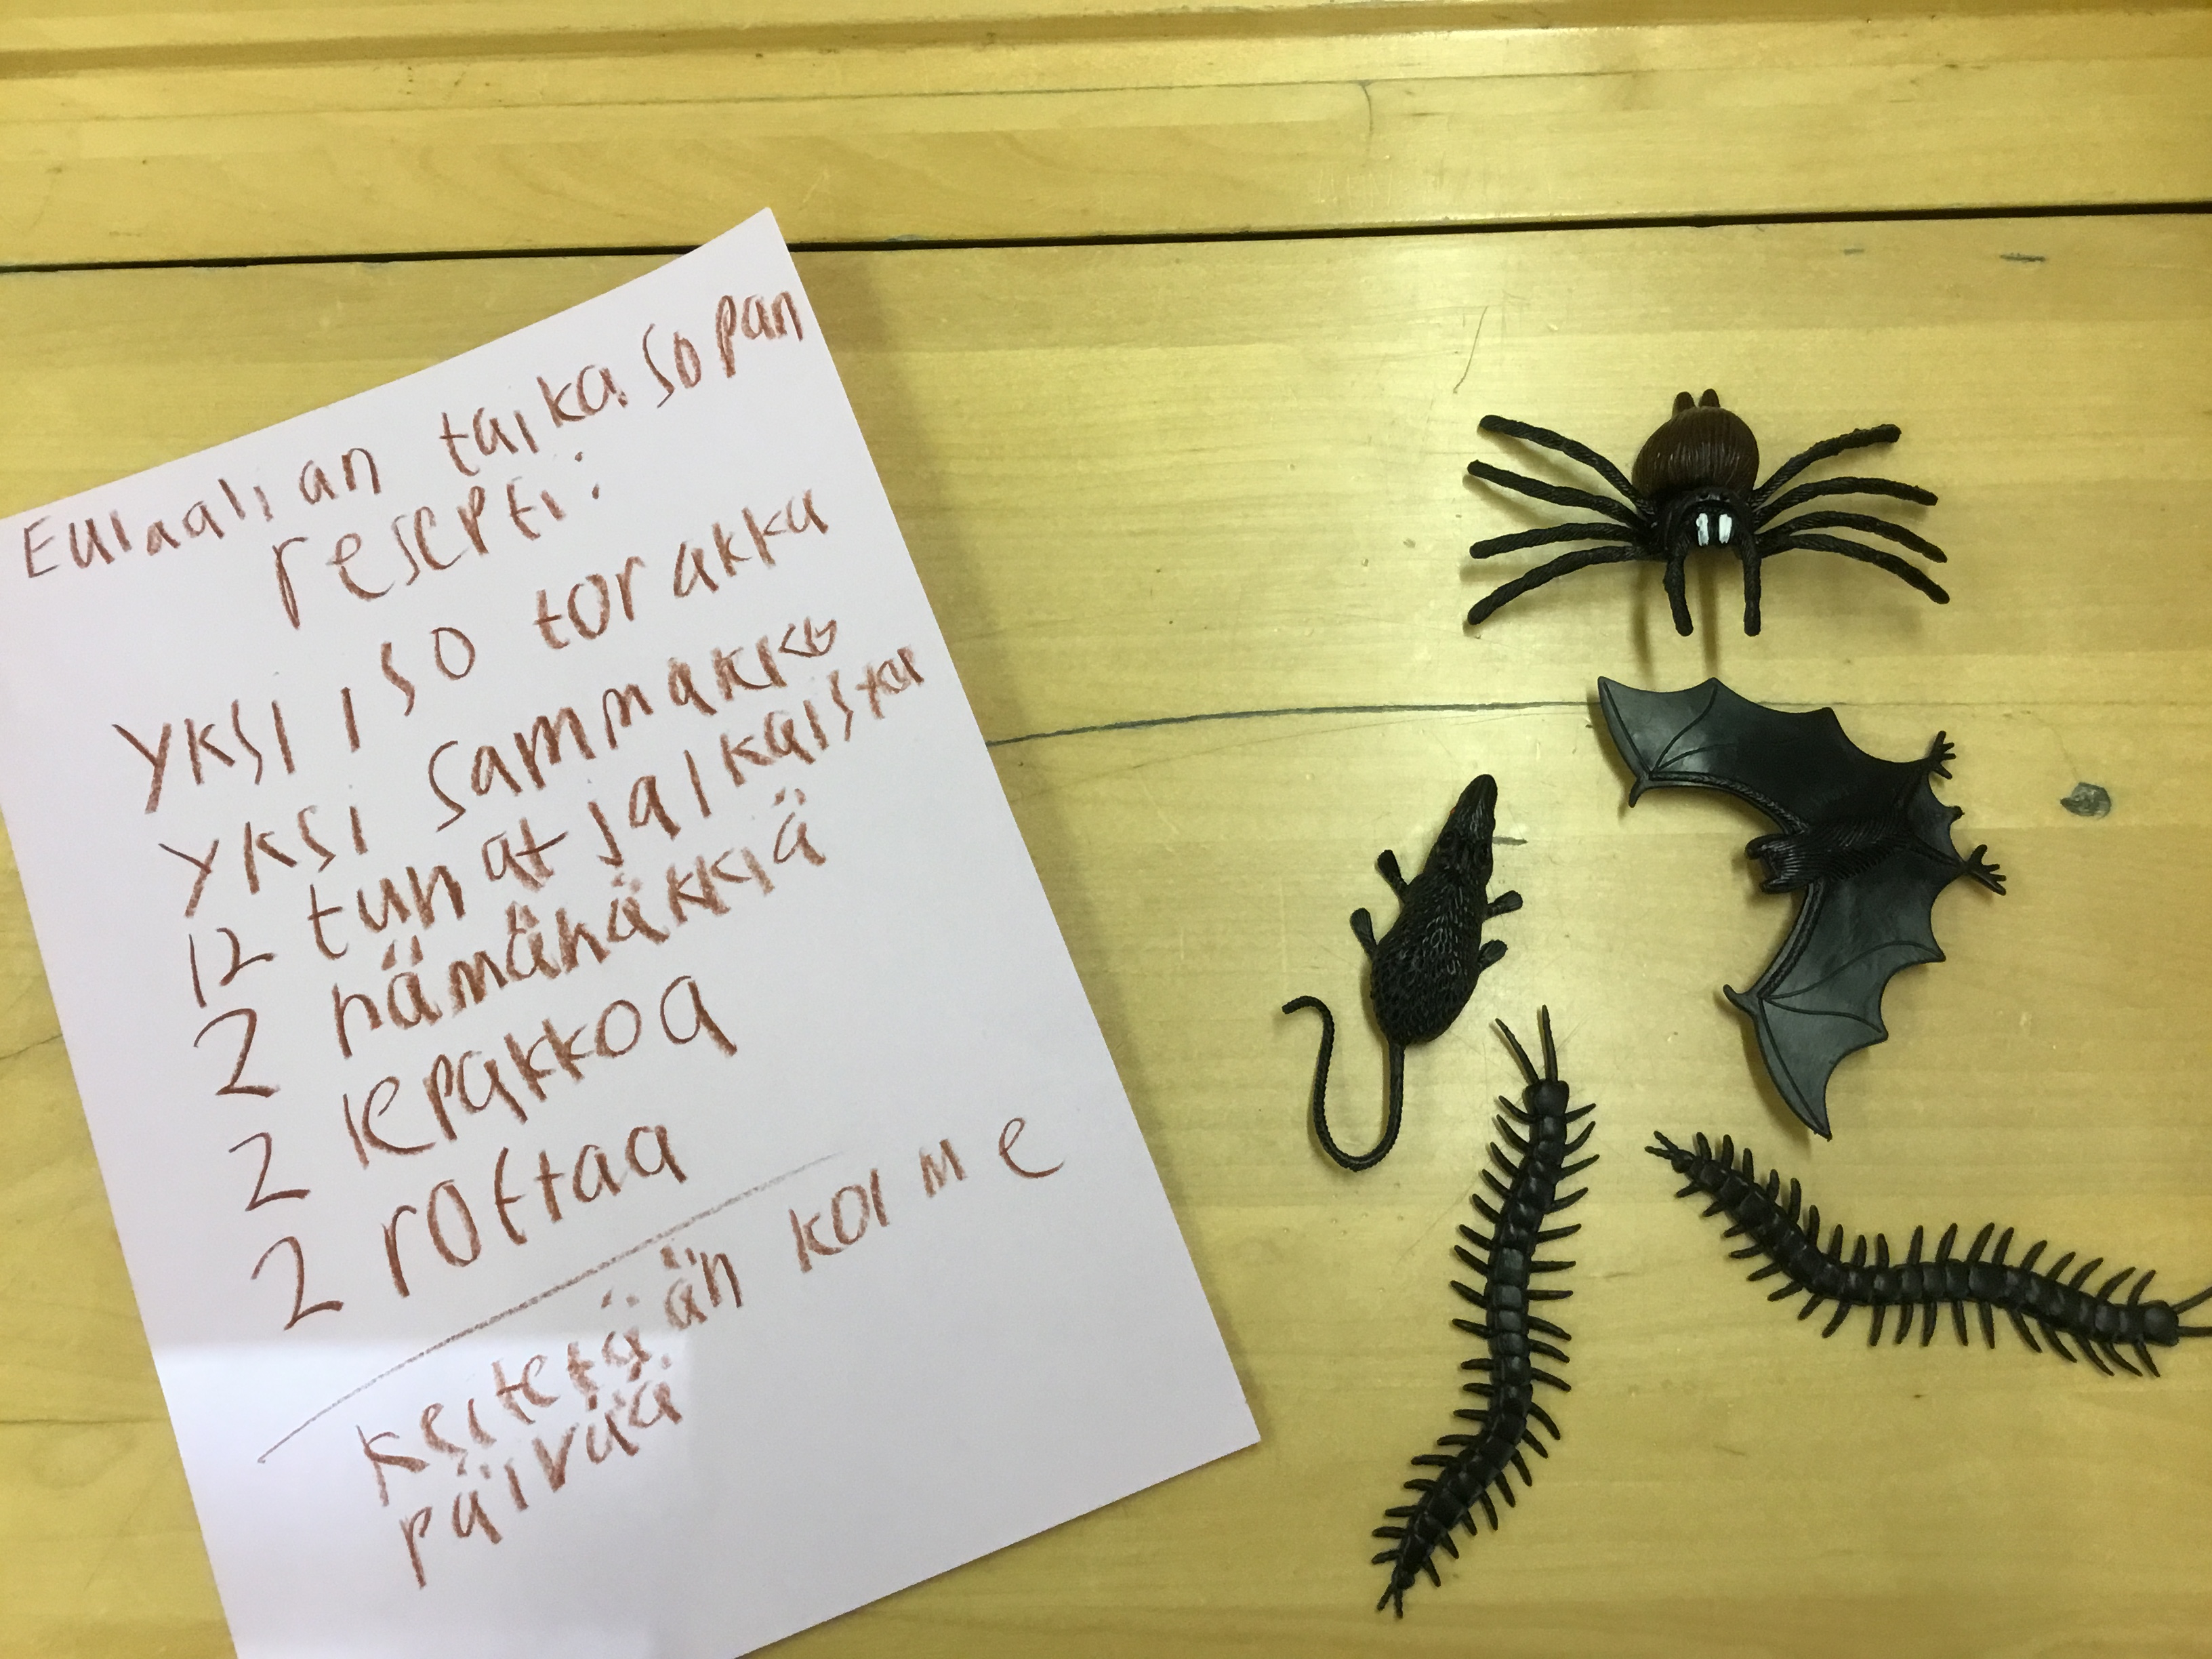 Eulaalian taikasopan
resepti:
yksi iso torakka
yksi sammakko
12 tuhatjalkaista
2 hämähäkkiä
2 lepakkoa
2 rottaa
keitetään kolme
päivää